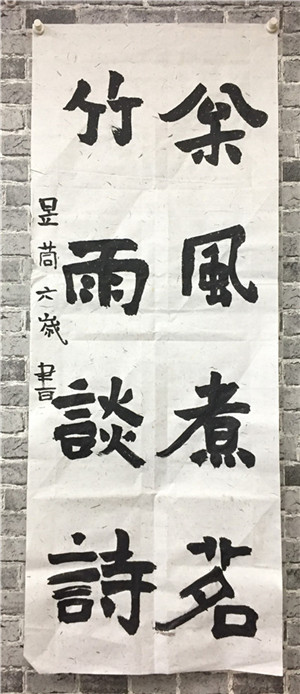 枀風煮茗
竹雨談詩
昱茼六歲書